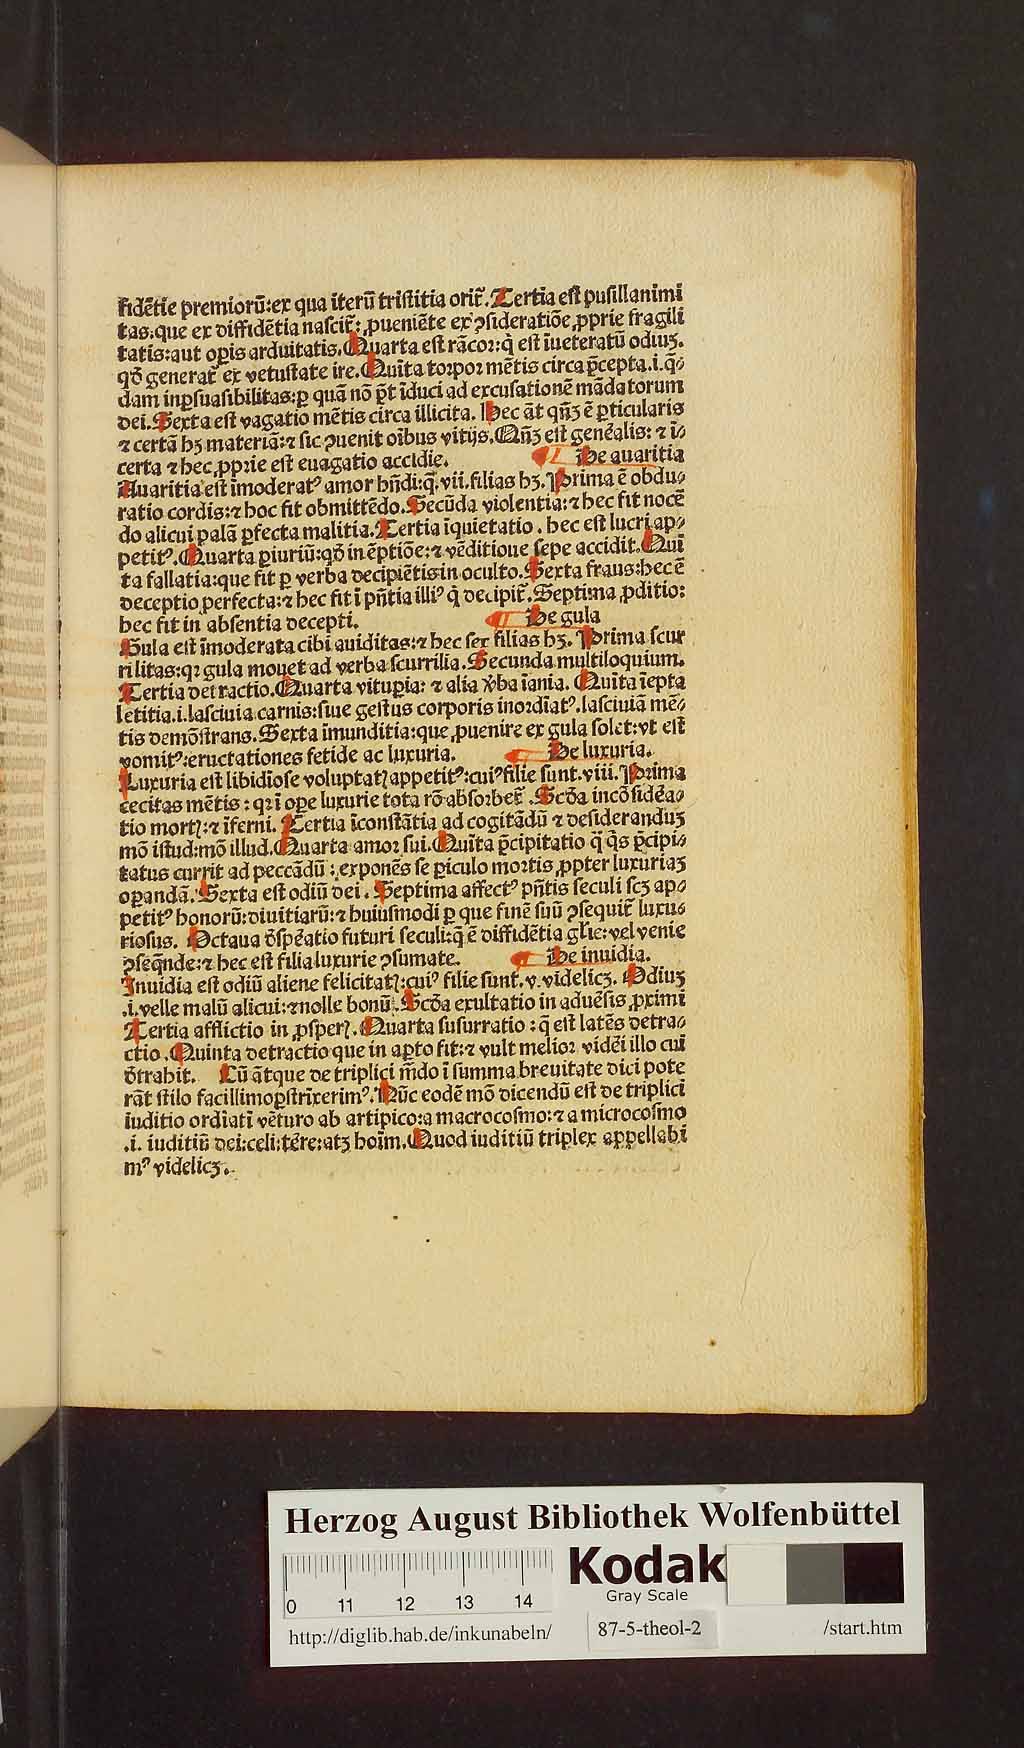 fidẽtie premiorũ:ex qua iterũ tristitia orit᷑. Tertia est pusillanimi
tas:que ex diffidẽtia nascit᷑: ꝓueniẽte ex ꝯsideratiõe ꝓprie fragili
tatis:aut oꝑis arduitatis. Quarta est rãcor: q̃ est ĩueteratũ odiuꝫ.
qđ generat᷑ ex vetustate ire. Quĩta torpor mẽtis circa p̃cepta.i.q̃⸗
dam inꝑsuasibilitas:ꝑ quã nõ p̃t ĩduci ad excusationẽ mãdatorum
dei. Sexta est vagatio mẽtis circa illicita. Hec ãt qñꝫ ẽ ꝑticularis
⁊ certã hꝫ materiã:⁊ sic ꝯuenit oĩbus vitijs. Qñꝫ est gen̄alis: ⁊ ĩ⸗
certa ⁊ hec ꝓprie est euagatio accidie. De auaritia
Auaritia est ĩmoderatꝰ amor hñdi:q̃ .vii. filias hꝫ. Prima ẽ obdu⸗
ratio cordis:⁊ hoc fit obmittẽdo. Secũda violentia:⁊ hec fit nocẽ
do alicui palã ꝑfecta malitia. Tertia ĩquietatio . hec est lucri ap⸗
petitꝰ. Quarta ꝑiuriũ:qđ in ẽptiõe:⁊ vẽditione sepe accidit. Quĩ
ta fallatia:que fit ꝑ verba decipiẽtis in oculto. Sexta fraus:hec ẽ
deceptio ꝑfecta:⁊ hec fit ĩ pñtia illiꝰ q̃ decipit᷑. Septima ꝓditio:
hec fit in absentia decepti. De gula
Gula est ĩmoderata cibi auiditas:⁊ hec sex filias hꝫ. Prima scur
rilitas:qꝛ gula mouet ad verba scurrilia. Secunda multiloquium.
Tertia detractio. Quarta vituꝑia: ⁊ alia v̾ba ĩania. Quĩta ĩepta
letitia.i.lasciuia carnis:siue gestus corporis inordĩatꝰ. lasciuiã mẽ⸗
tis demõstrans. Sexta ĩmunditia:que ꝓuenire ex gula solet:vt est
vomitꝰ:eructationes fetide ac luxuria. De luxuria.
Luxuria est libidiose voluptatꝭ appetitꝰ:cuiꝰ filie sunt .viii. Prima
cecitas mẽtis : qꝛ ĩ oꝑe luxurie tota rõ absorbet᷑ . Scđa incõsid̾a⸗
tio mortꝭ:⁊ ĩferni. Tertia ĩconstãtia ad cogitãdũ ⁊ desideranduꝫ
mõ istud:mõ illud. Quarta amor sui. Quĩta p̃cipitatio q̃ q̃s p̃cipi⸗
tatus currit ad peccãdũ : exponẽs se ꝑiculo mortis ꝓpter luxuriaꝫ
oꝑandã. Sexta est odiũ dei . Septima affectꝰ pñtis seculi scꝫ ap⸗
petitꝰ honorũ:diuitiarũ:⁊ huiusmodi ꝑ que finẽ suũ ꝯsequit᷑ luxu⸗
riosus. Octaua đsp̾atio futuri seculi:q̃ ẽ diffidẽtia gl̃ie:vel venie
ꝯseq̃nde:⁊ hec est filia luxurie ꝯsumate. De inuidia.
Inuidia est odiũ aliene felicitatꝭ:cuiꝰ filie sunt .v. videlicꝫ. Odiuꝫ
.i. velle malũ alicui:⁊ nolle bonũ. Scđa exultatio in aduẽsis ꝓximi
Tertia afflictio in ꝓsperꝭ. Quarta susurratio : q̃ est latẽs detra⸗
ctio . Quinta detractio que in aꝑto fit:⁊ vult melior vid̾i illo cui
đtrahit. Cũ ãtque de triplici m̃do ĩ summa breuitate dici pote
rãt stilo facillimo ꝑstrĩxerimꝰ. Nũc eodẽ mõ dicendũ est de triplici
iuditio ordĩati vẽturo ab artipico:a macrocosmo:⁊ a microcosmo
.i. iuditiũ dei:celi:t̾re:atꝫ hoĩm. Quod iuditiũ triplex appellabi
mꝰ videlicꝫ.
Herzog August Bibliothek Wolfenbüttel
0 11 12 13 14
Kodak
Gray Scale
http://diglib.hab.de/inkunabeln/ 87-5-theol-2 /start.htm